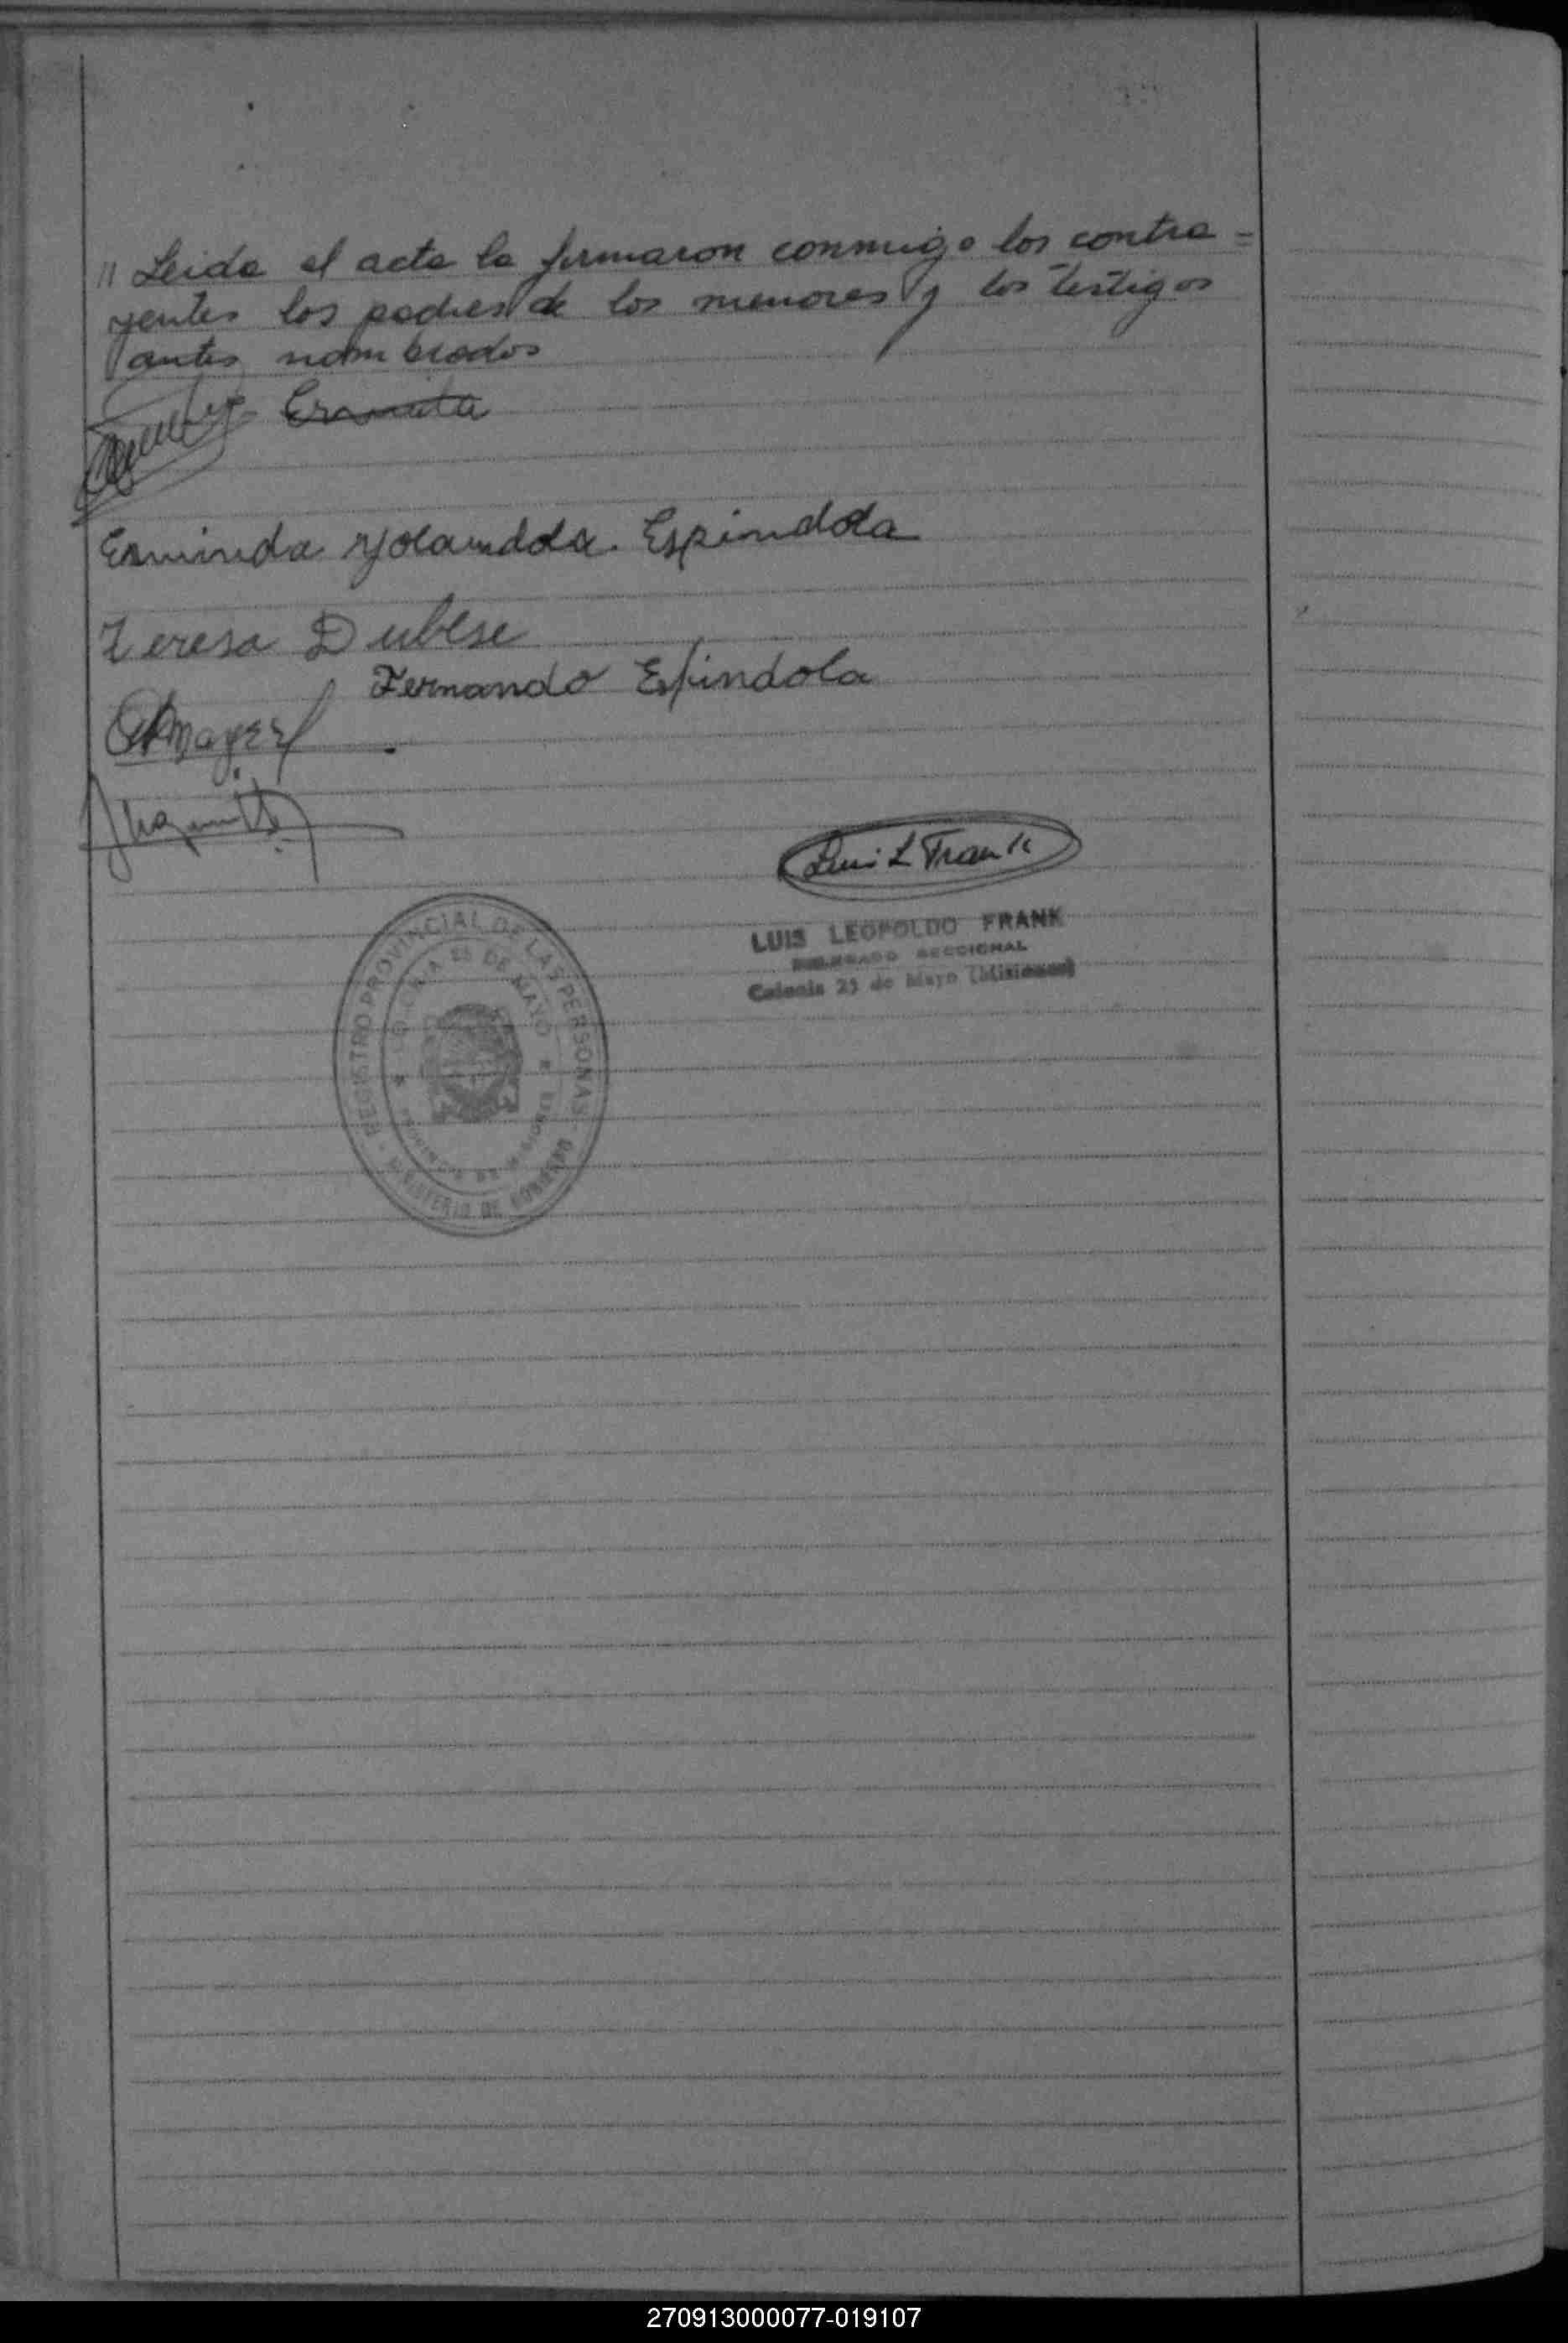 // Leida el acta la firmaron conmigo los contra =
yentes los padres de los menores y los testigos
antes nombrados
Erminda Yolandda Espindola
Teresa Dubese
Fernando Espindola
Mayer
Luis L Frank
LUIS LEOPOLDO FRANK
DELEGADO SECCIONAL
Colonia 25 de Mayo (Misiones)
REGISTRO PROVINCIAL DE LAS PERSONAS
COLONIA 25 DE MAYO
PROVINCIA DE MISIONES
MINISTERIO DE GOBIERNO
270913000077-019107